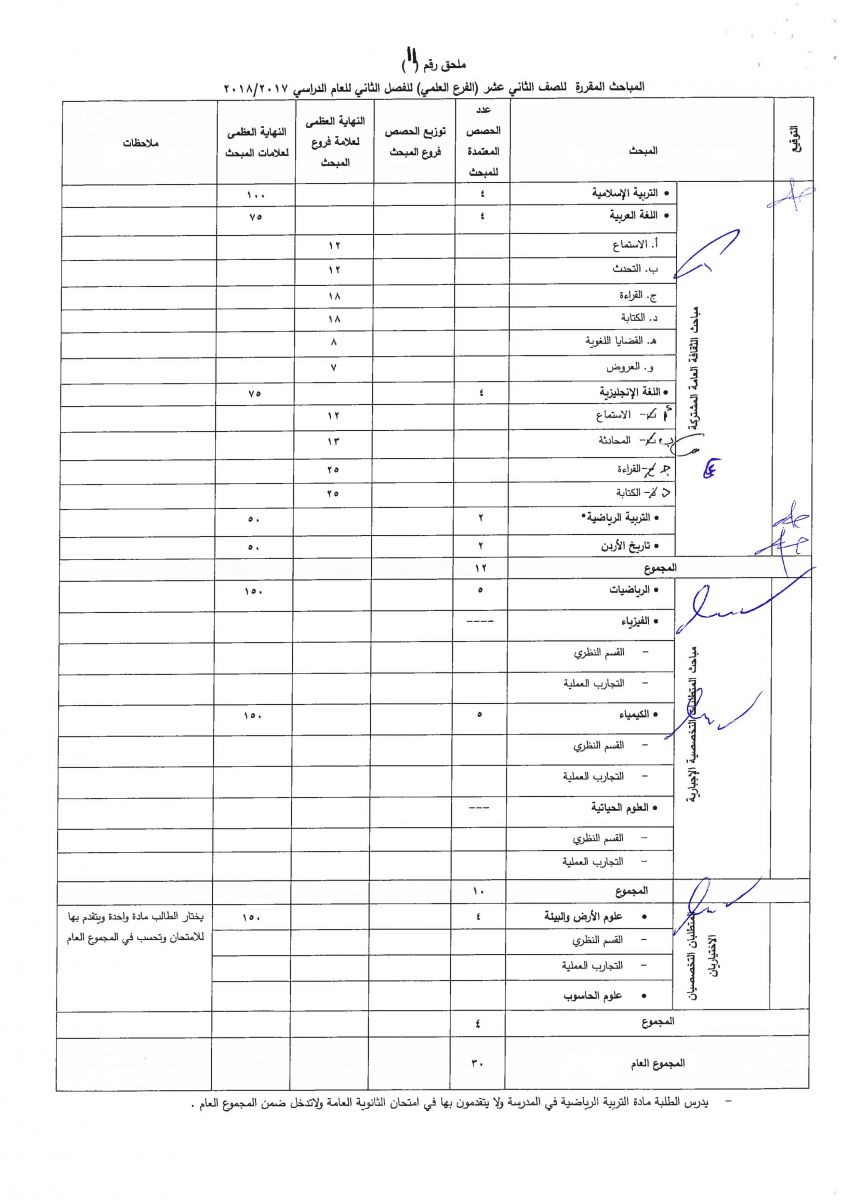 ملحق رقم (١١)
المباحث المقررة للصف الثاني عشر (الفرع العلمي) للفصل الثاني للعام الدراسي ٢٠١٨/٢٠١٧
التوقيع المبحث عدد الحصص المعتمدة للمبحث توزيع الحصص فروع المبحث النهاية العظمى لعلامة فروع المبحث النهاية العظمى لعلامات المبحث ملاحظات
مباحث الثقافة العامة المشتركة
• التربية الإسلامية ٤ ١٠٠
• اللغة العربية ٤ ٧٥
أ. الاستماع ١٢
ب. التحدث ١٢
ج. القراءة ١٨
د. الكتابة ١٨
هـ. القضايا اللغوية ٨
و. العروض ٧
• اللغة الإنجليزية ٤ ٧٥
أ - الاستماع ١٢
ب - المحادثة ١٣
ج - القراءة ٢٥
د - الكتابة ٢٥
• التربية الرياضية* ٢ ٥٠
• تاريخ الأردن ٢ ٥٠
المجموع ١٢
مباحث المتطلبات التخصصية الإجبارية
• الرياضيات ٥ ١٥٠
• الفيزياء ----
– القسم النظري
– التجارب العملية
• الكيمياء ٥ ١٥٠
– القسم النظري
– التجارب العملية
• العلوم الحياتية ---
– القسم النظري
– التجارب العملية
المجموع ١٠
المتطلبان التخصصيان
الاختياريان
• علوم الأرض والبيئة ٤ ١٥٠ يختار الطالب مادة واحدة ويتقدم بها
– القسم النظري للامتحان وتحسب في المجموع العام
– التجارب العملية
• علوم الحاسوب
المجموع ٤
المجموع العام ٣٠
– يدرس الطلبة مادة التربية الرياضية في المدرسة ولا يتقدمون بها في امتحان الثانوية العامة ولاتدخل ضمن المجموع العام .